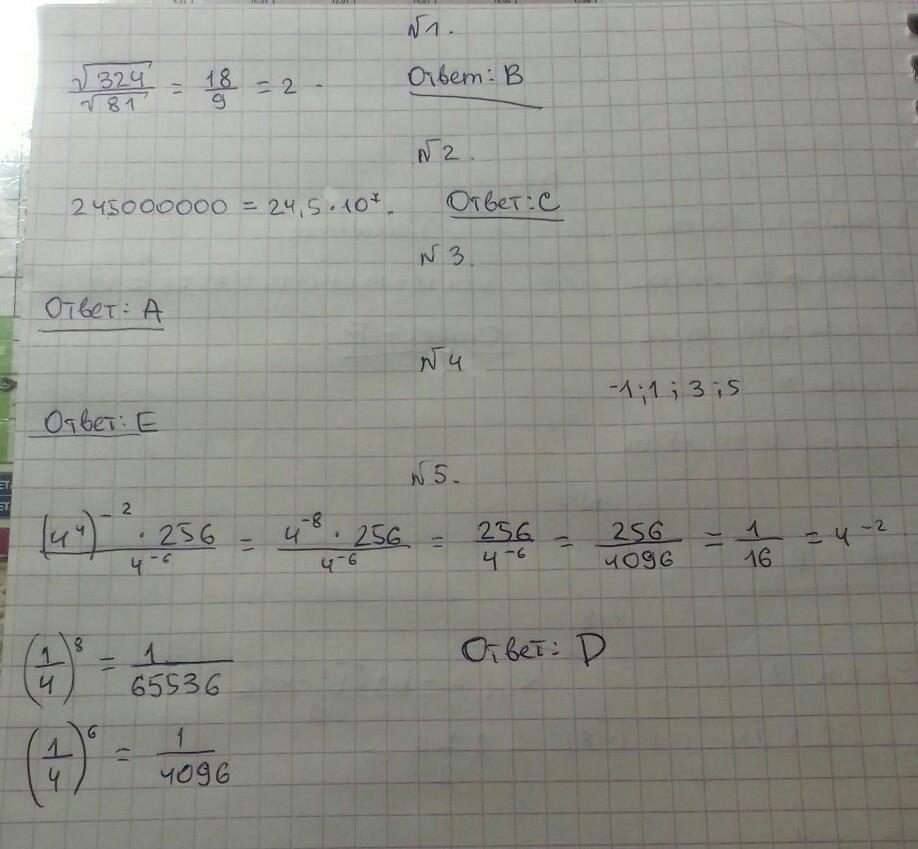 №1.
√324/√81 = 18/9 = 2. Ответ: B
№2.
245000000 = 24,5·10⁷. Ответ: C
№3.
Ответ: A
№4
-1; 1; 3; 5
Ответ: E
№5.
(4⁴)⁻² · 256/4⁻⁶ = 4⁻⁸ · 256/4⁻⁶ = 256/4⁻⁶ = 256/4096 = 1/16 = 4⁻²
(1/4)⁸ = 1/65536 Ответ: D
(1/4)⁶ = 1/4096